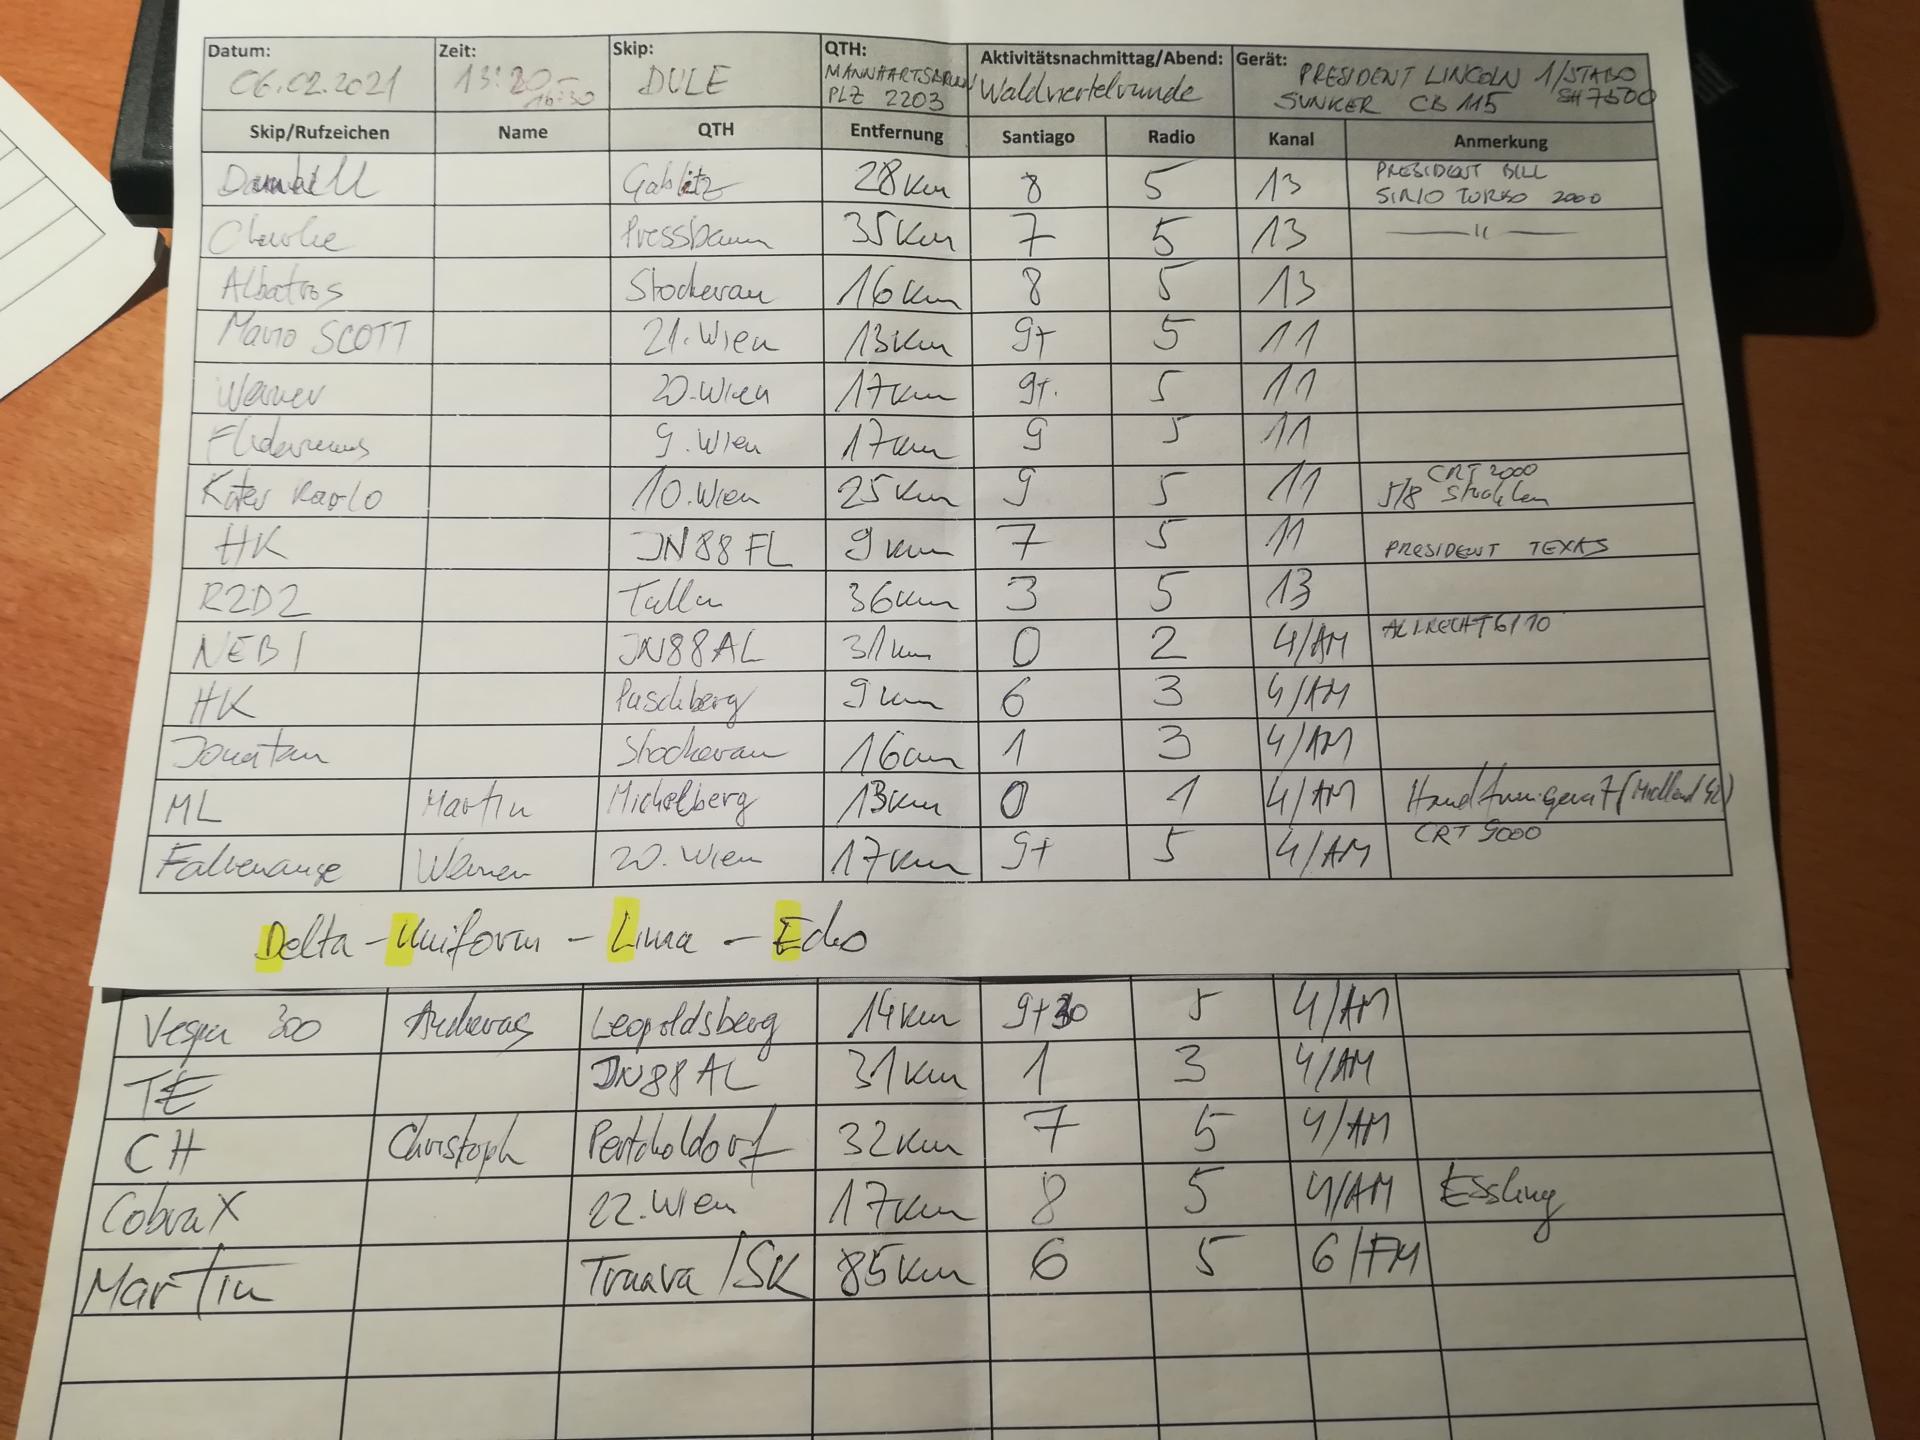 Datum: Zeit: Skip: QTH: Aktivitätsnachmittag/Abend: Gerät:
06.02.2021 13:20- 16:30 DULE MANNHARTSBRUNN PLZ 2203 Waldviertelrunde PRESIDENT LINCOLN 1/STABO SH7500
SUNKER CB 115
Skip/Rufzeichen Name QTH Entfernung Santiago Radio Kanal Anmerkung
Gablitz 28km 8 5 13 PRESIDENT BILL
SIRIO TURBO 2000
Charlie Pressbaum 35km 7 5 13 —— " ——
Albatros Stockerau 16km 8 5 13
Mario SCOTT 21. Wien 13km 9+ 5 11
Werner 20. Wien 17km 9+. 5 11
9. Wien 17km 9 5 11
Kater Karlo 10. Wien 25km 9 5 11 CRT 2000
5/8 Strahler
HK JN88FL 9km 7 5 11 PRESIDENT TEXAS
R2D2 Tulln 36km 3 5 13
NEB1 JN88AL 31km 0 2 4/AM
HK 9km 6 3 4/AM
Jonatan Stockerau 16km 1 3 4/AM
ML Martin Michelberg 13km 0 1 4/AM Handfunkgerät (Midland 42)
Falkenauge Werner 20. Wien 17km 9+ 5 4/AM CRT 9000
Delta - Uniform - Lima - Echo
Vespa 300 Andreas Leopoldsberg 14km 9+30 5 4/AM
TE JN88AL 31km 1 3 4/AM
CH Christoph Pertcholdorf 32km 7 5 4/AM
CobraX 22. Wien 17km 8 5 4/AM Essling
Martin Trnava/SK 85km 6 5 6/FM